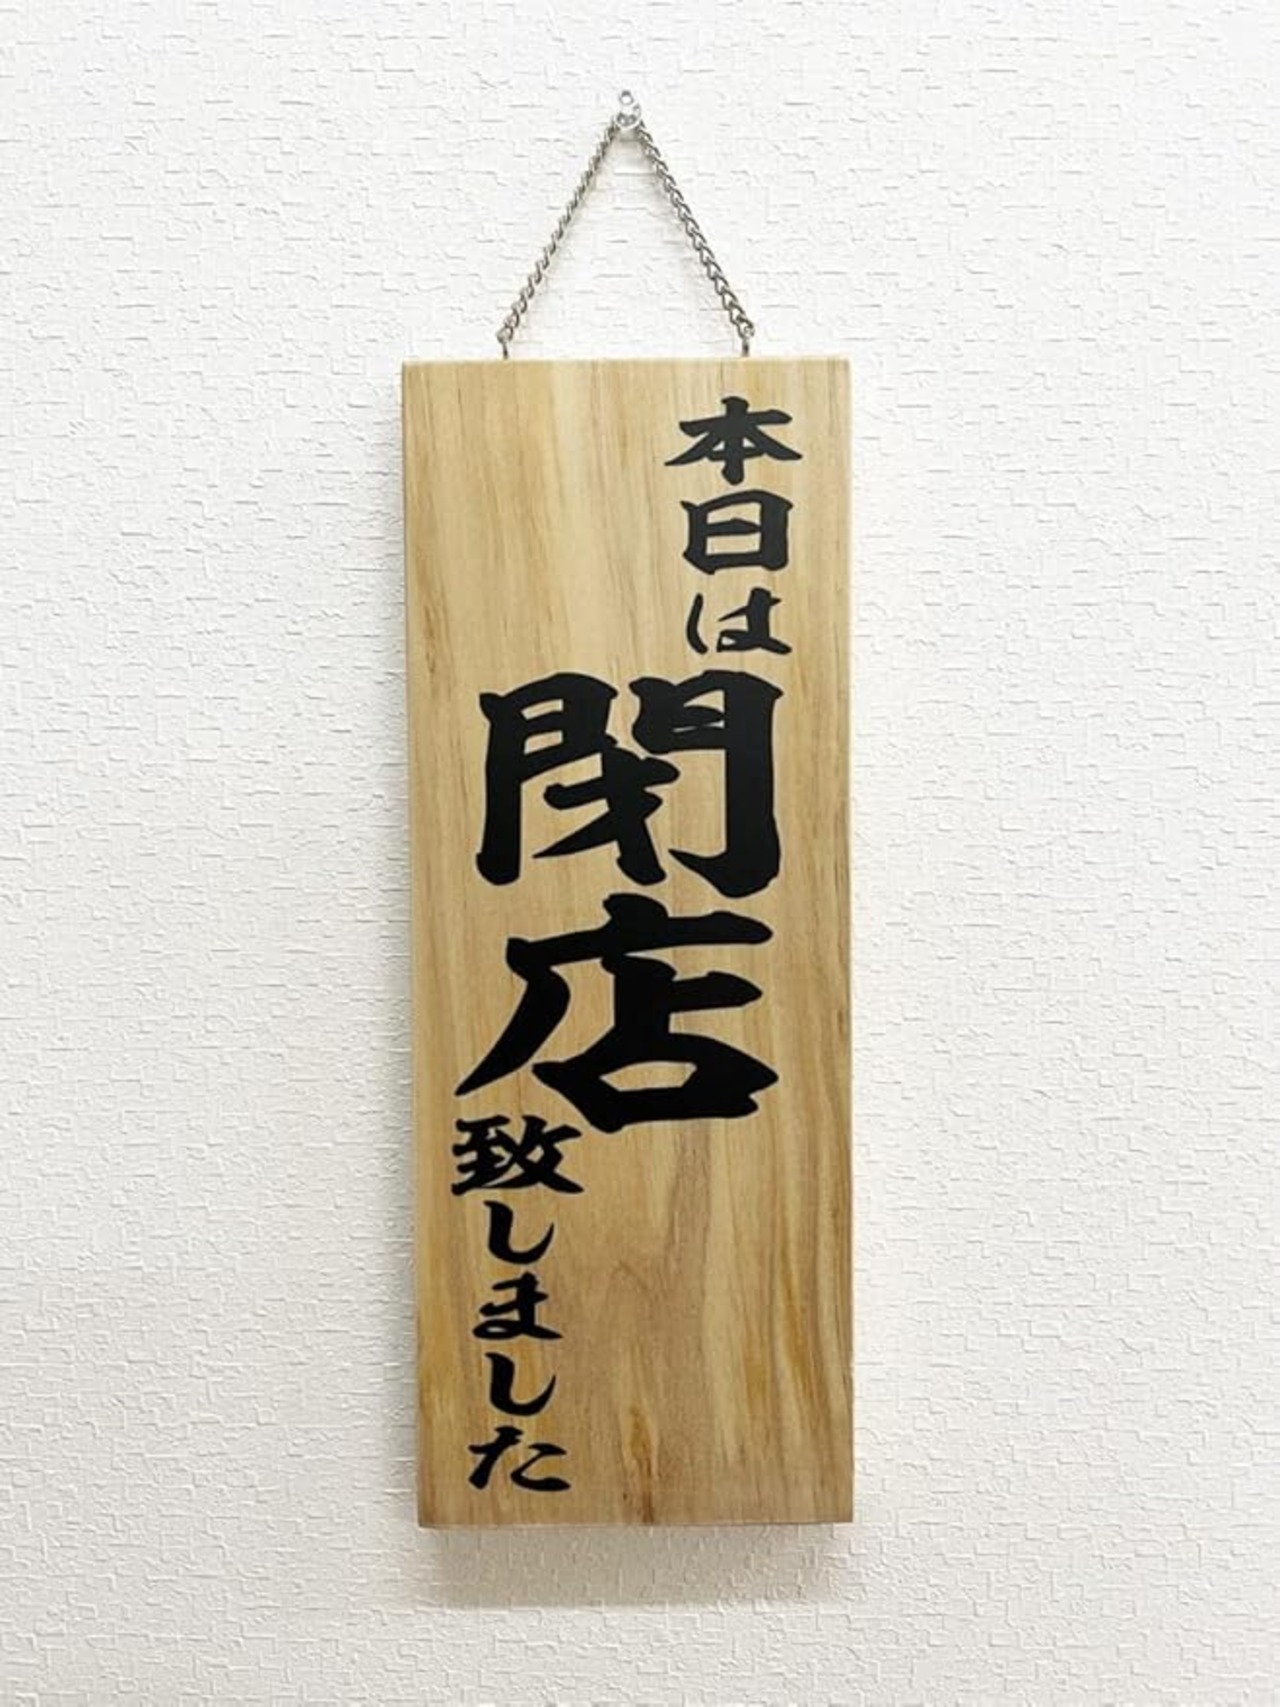 本日は
閉店
致しました